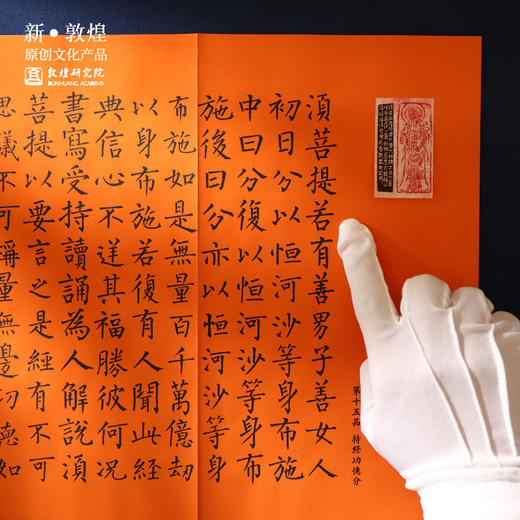 新·敦煌
原创文化产品
敦煌研究院
DUNHUANG ACADEMY
第十五品 持经功德分
湏菩提若有善男子善女人
初日分以恒河沙等身布施
中日分復以恒河沙等身布
施後日分亦以恒河沙等身
布施如是無量百千萬億劫
以身布施若復有人聞此經
典信心不逆其福勝彼何況
書寫受持讀誦為人解說湏
菩提以要言之是經有不可
思議不可稱量無邊功德如